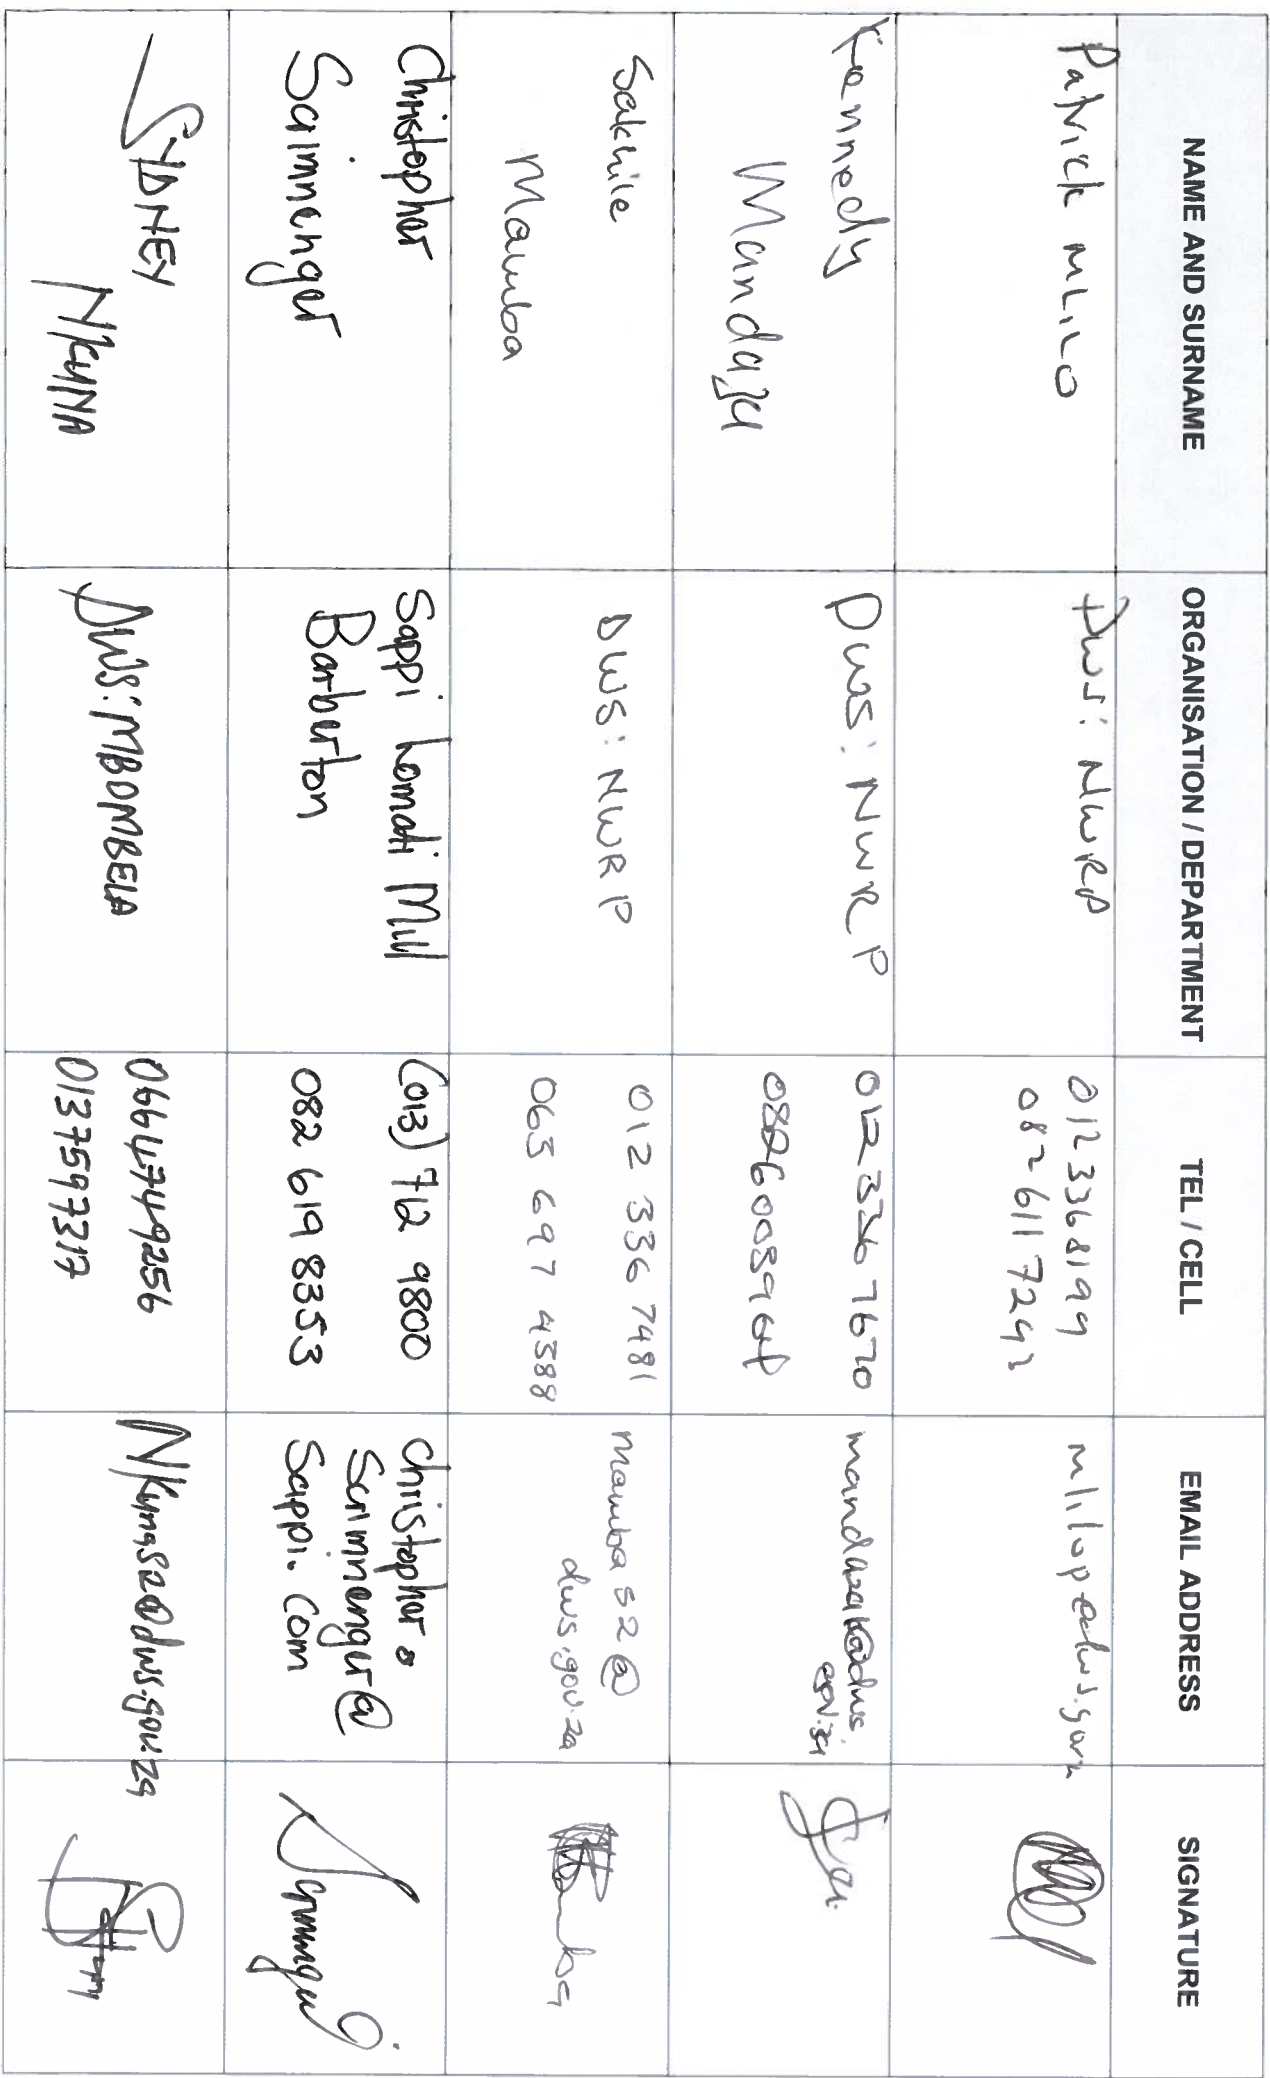 NAME AND SURNAME
ORGANISATION / DEPARTMENT
TEL / CELL
EMAIL ADDRESS
SIGNATURE
Patrick MLILO
DWS: NWRP
012 336 8199
082 611 7292
mlilop@dws.gov.za
Kennedy
Mandaza
DWS: NWRP
012 336 7670
mandazak@dws.
gov.za
Sakhile
Mamba
DWS: NWRP
012 336 7481
063 697 4388
mambas2@
dws.gov.za
Christopher
Scrimnger
Sappi Lomati Mill
Barberton
(013) 712 9800
082 619 8353
Christopher.
Scrimnger@
Sappi.Com
SYDNEY
NKUNA
DWS: MBOMBELA
0664749256
0137597317
NkunaS2@dws.gov.za